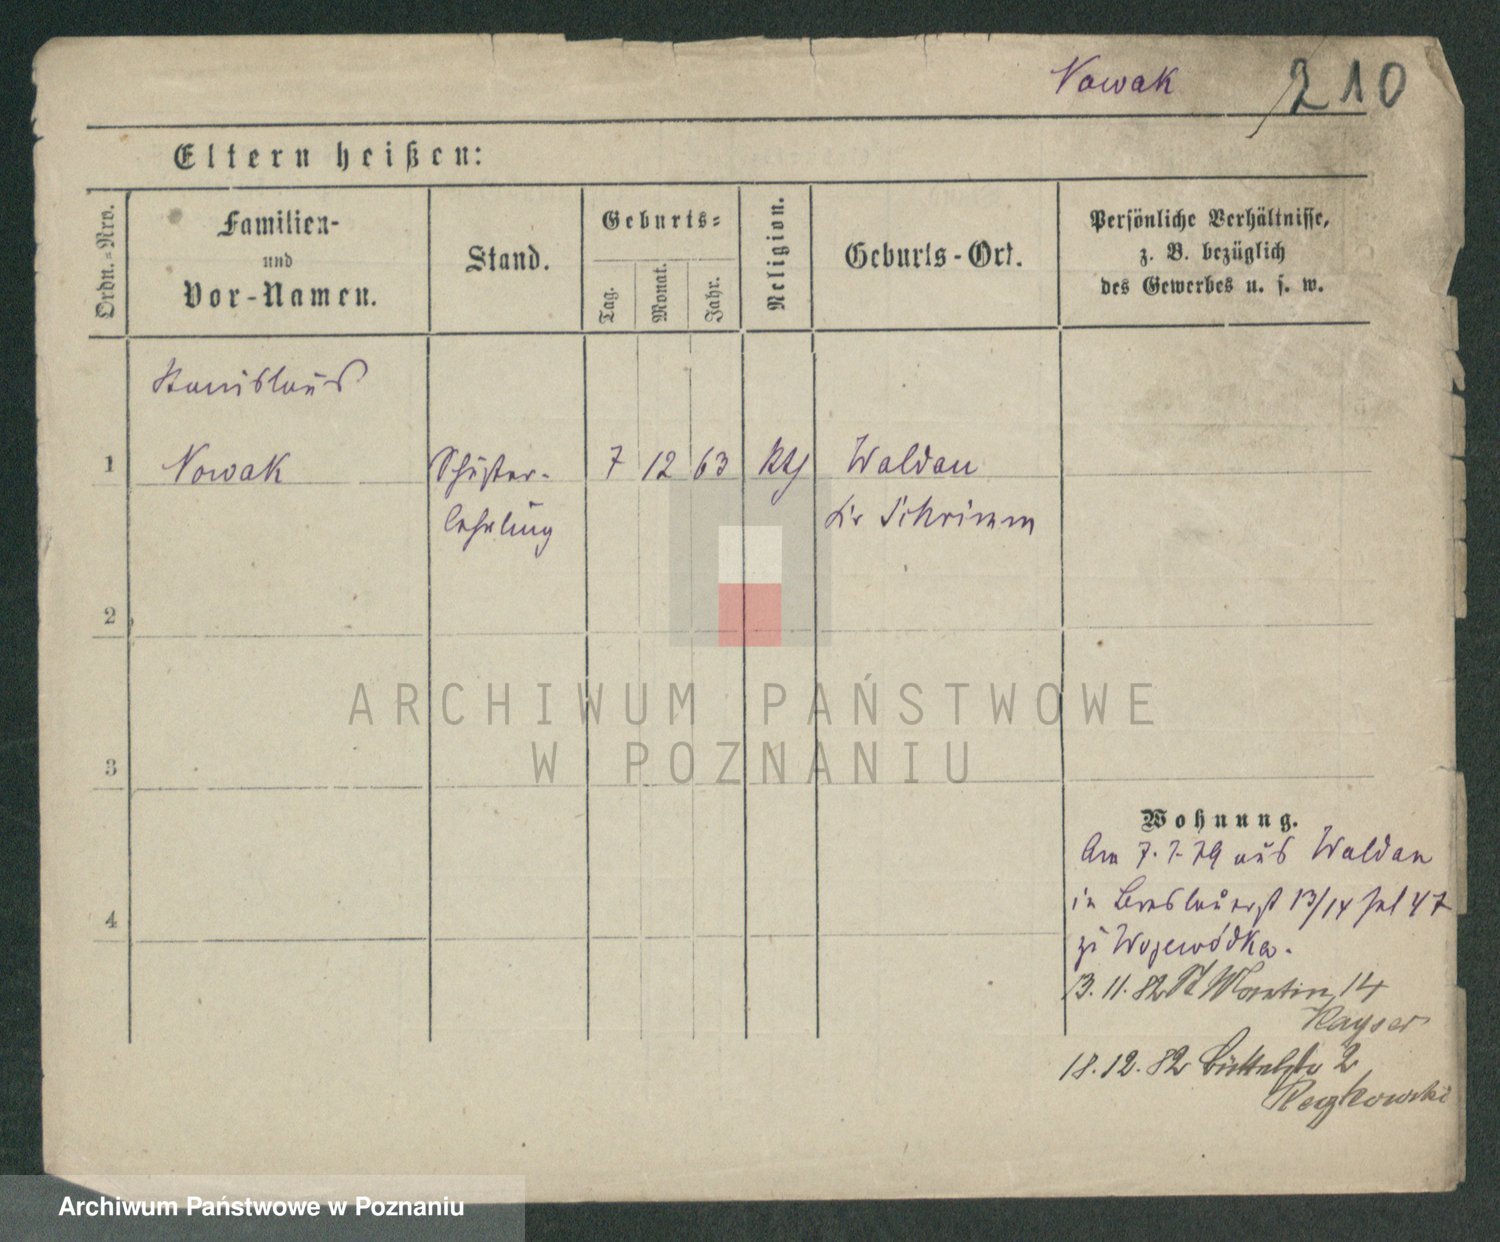 Nowak 210
Eltern heißen:
Ordn.=Nro.
Familien-
und
Vor-Namen.
Stand.
Geburts=
Tag.
Monat.
Jahr.
Religion.
Geburts-Ort.
Persönliche Verhältnisse,
z. B. bezüglich
des Gewerbes u. s. w.
Stanislaus
1 Nowak Schuster- 7 12 63 kth Waldau
lehrling Kr Schrimm
2
3
4
Wohnung.
Am 7. 7. 79 aus Waldau
in Breslauerst 13/14 47
zu Wojewódka.
13. 11. 82 St Martin 14
Kayser
18. 12. 82 Büttelstr 2
ARCHIWUM PAŃSTWOWE
W POZNANIU
Archiwum Państwowe w Poznaniu